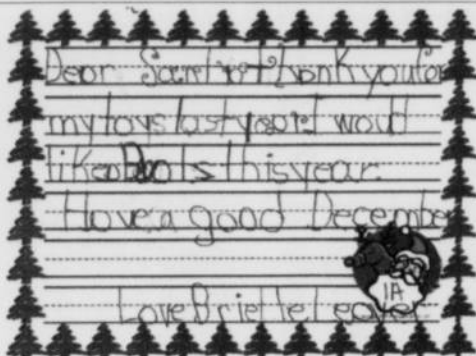 Dear Santa thank you for
my toys last year I would
like a Boots this year.
Have a good December
Love Brielle
IA